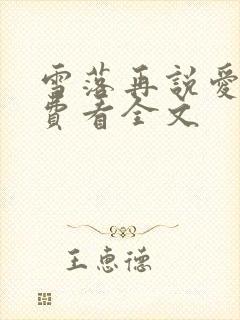 雪落再説愛
費看全文
王惠德